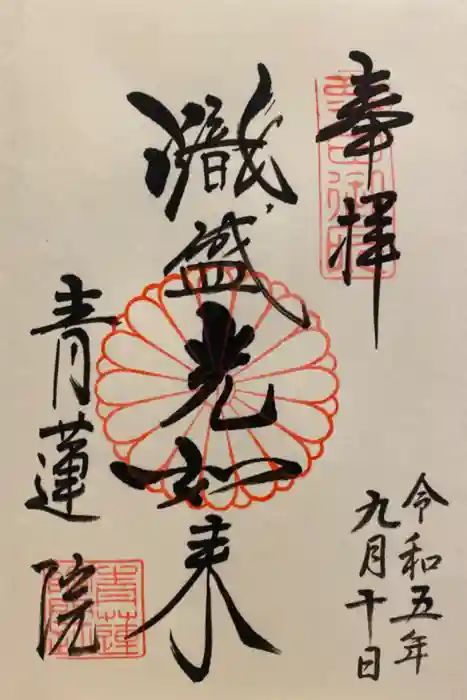 奉拝
粟田御所
令和五年
九月十日
熾盛光如来
青蓮院